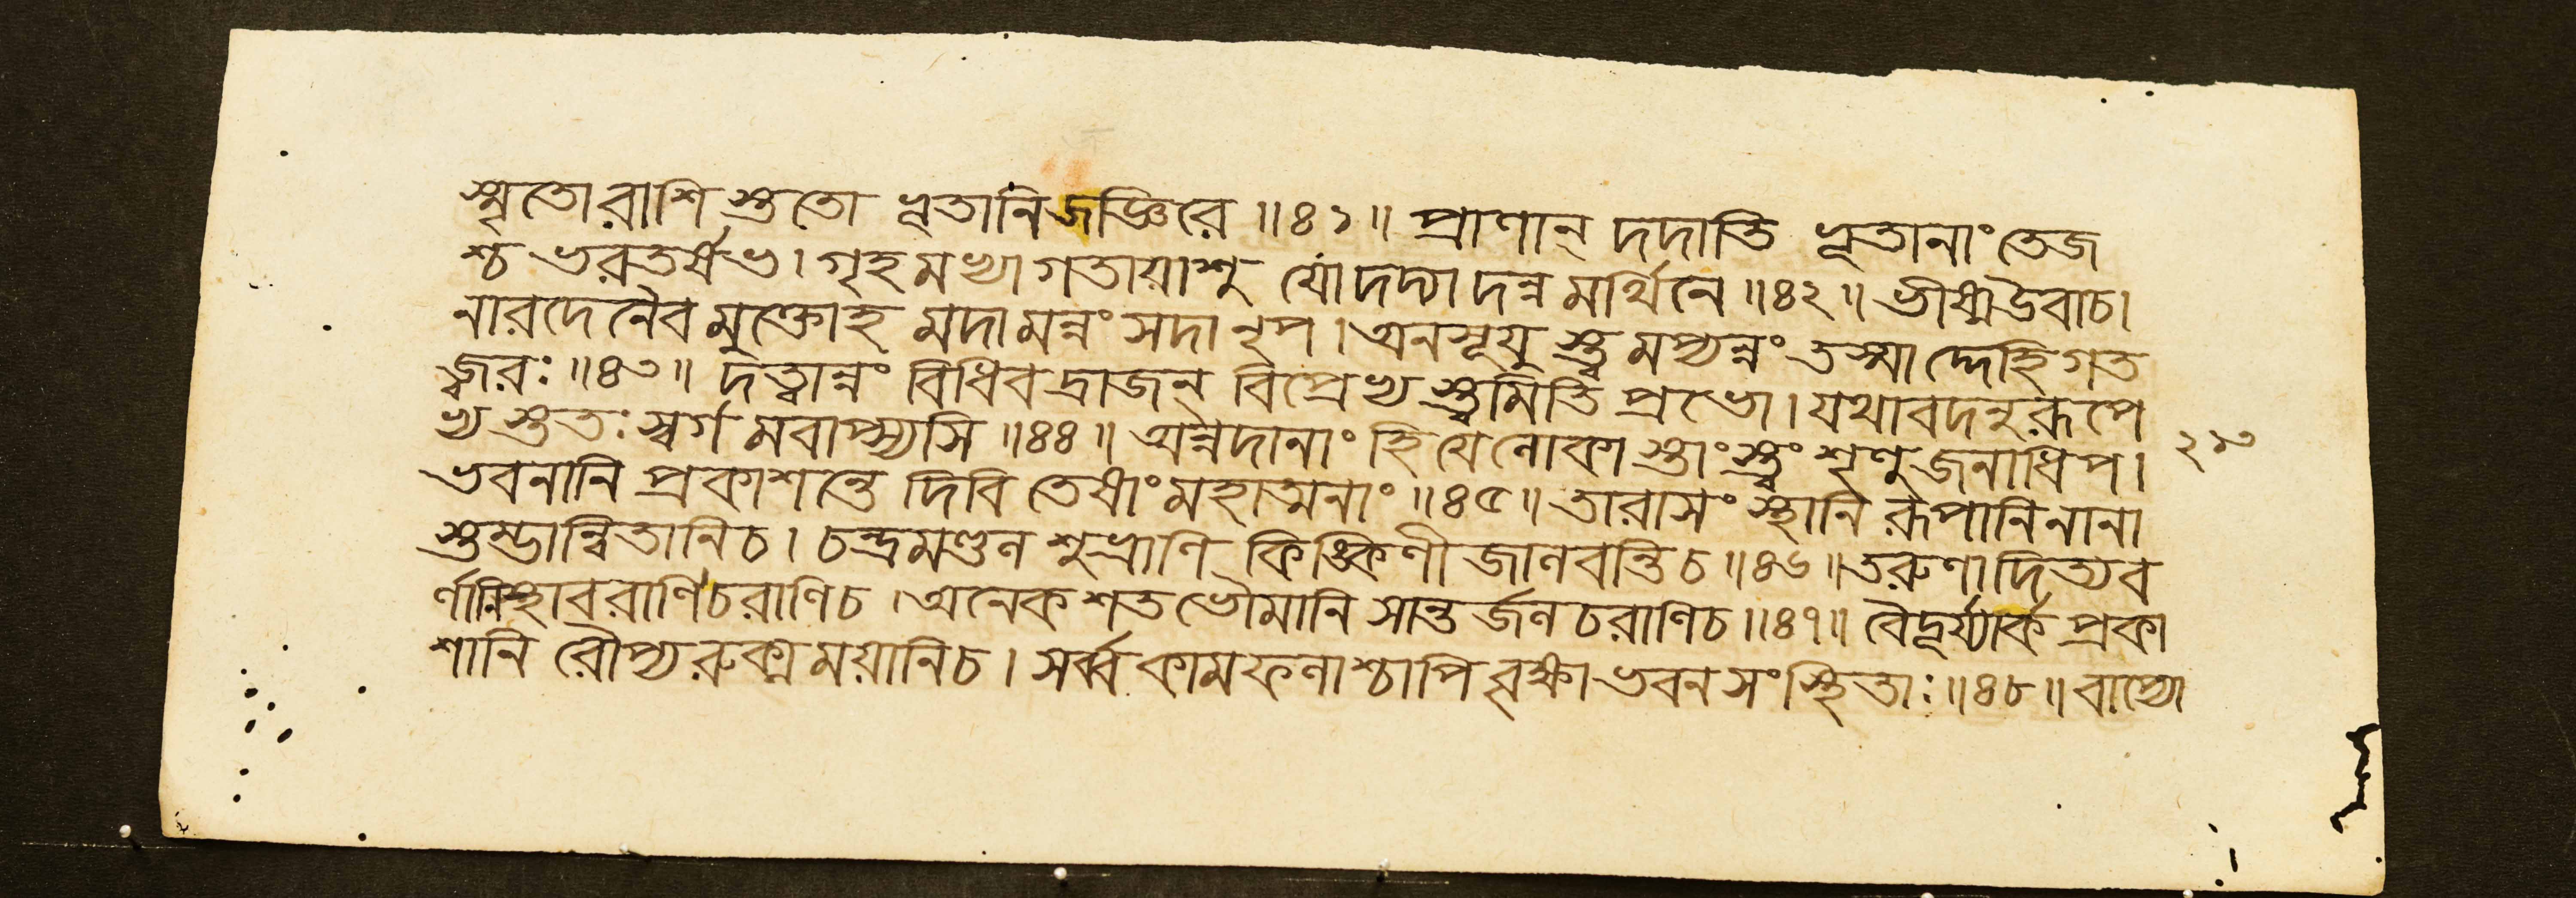 স্মৃতোরাশি স্তুতো ভূতানিজজ্ঞিরে॥৪১॥ প্রাণান্ দদাতি ভূতানাং তেজ
শ্চ ভরতর্ষভ। গৃহমভ্যাগতায়াশু যোদদ্যাদন্নমর্থিনে॥৪২॥ ভীষ্মউবাচ।
নারদেনৈবমুক্তোহমদামন্নং সদা নৃপ। অনসূয়ুস্ত্বমপ্যন্নং তস্মাদ্দেহিগত
জ্বরঃ॥৪৩॥ দত্ত্বান্নং বিধিবদ্রাজন্ বিপ্রেভ্যস্ত্বমিতি প্রভো। যথাবদনুরূপে
ভ্যস্ততঃস্বর্গমবাপ্স্যসি॥৪৪॥ অন্নদানাং হিযেলোকাস্তাংস্ত্বং শৃণুজনাধিপ।
ভবনানি প্রকাশন্তে দিবি তেষাং মহাত্মনাং॥৪৫॥ তারাসংস্থানি রূপানিনানা
স্তম্ভান্বিতানিচ। চন্দ্রমণ্ডল শুভ্রাণি কিঙ্কিণীজালবন্তিচ॥৪৬॥ তরুণাদিত্যব
র্ণানিস্থাবরাণিচরাণিচ। অনেকশতভৌমানি সান্তর্জলচরাণিচ॥৪৭॥ বৈদূর্য্যার্কপ্রকা
শানি রৌপ্যরুক্মময়ানিচ। সর্ব্বকামফলাশ্চাপি বৃক্ষাভবনসংস্থিতাঃ॥৪৮॥ বাপ্যো